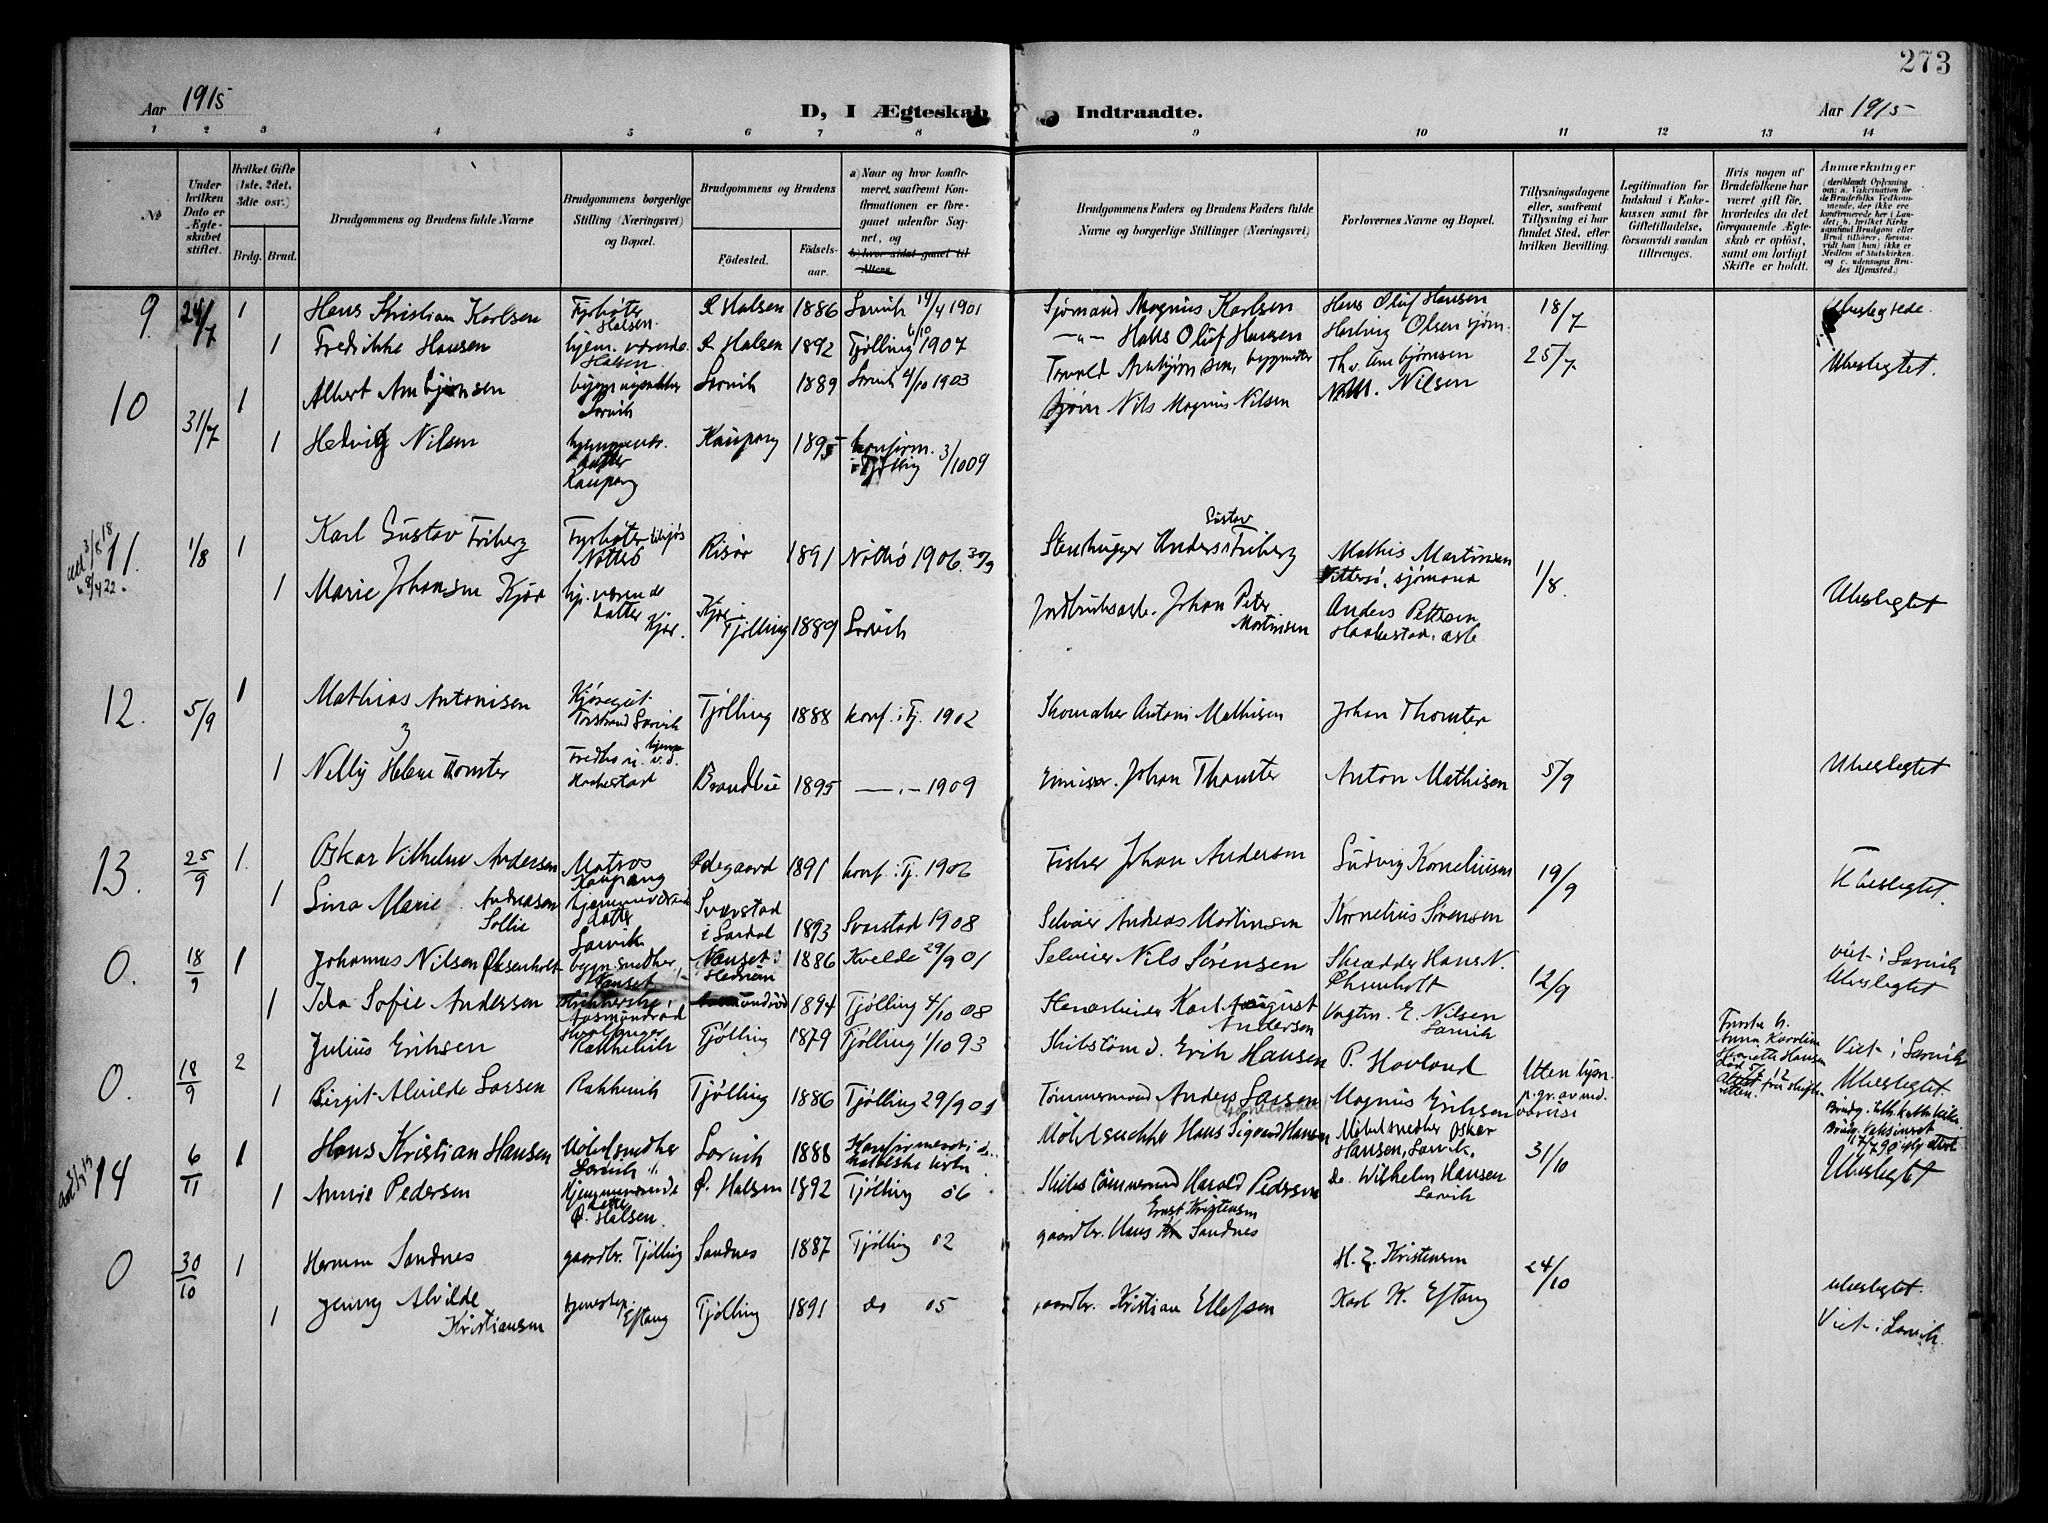 273
Aar 1915
D, I Ægteskab Indtraadte.
Aar 1915
1 2 3 4 5 6 7 8 9 10 11 12 13 14
№
Under hvilken Dato er Ægteskabet stiftet.
Hvilket Gifte (1ste, 2det, 3die osv.)
Brdg. Brud.
Brudgommens og Brudens fulde Navne
Brudgommens borgerlige Stilling (Næringsvei) og Bopæl.
Brudgommens og Brudens
Födested.
Födselsaar.
a) Naar og hvor konfirmeret, saafremt Konfirmationen er foregaaet udenfor Sognet, og
b) hvor sidst gaaet til Alters.
Brudgommens Faders og Brudens Faders fulde Navne og borgerlige Stillinger (Næringsvei)
Forlovernes Navne og Bopæl.
Tillysningsdagene eller, saafremt Tillysning ei har fundet Sted, efter hvilken Bevilling.
Legitimation for Indskud i Enkekassen samt for Giftetilladelse, forsaavidt saadan tiltrænges.
Hvis nogen af Brudefolkene har været gift før, hvorledes da det foregaaende Ægteskab er opløst, samt om lovligt Skifte er holdt.
Anmærkninger
(deriblandt Oplysning om: a. Vakcination for de Brudefolks Vedkommende, der ikke ere konfirmerede her i Landet; b. hvilket Kirkesamfund Brudgom eller Brud tilhörer, forsaavidt han (hun) ikke er Medlem af Statskirken, og c. udensogns Brudes Hjemsted.)
9. 24/7 1 Hans Kristian Karlsen Fyrbøter Halsen. Ø Halsen 1886 Larvik 14/4 1901 Sjømand Magnus Karlsen Hans Oluf Hansen 18/7 Ubeslegtede.
1 Fredrikke Hansen hjem. værende Halsen Ø Halsen 1892 Tjølling 6/10 1907 —"— Hans Oluf Hansen Olsen sjøm. 25/7
10 31/7 1 Albert Arnbjørnsen Larvik Larvik 1889 Larvik 4/10 1903 Torvald Arnbjørnsen, byggmester Th. Arnbjørnsen Ubeslegtet.
1 Hedvig Nilsen Kaupang Kaupang 1895 konfirm. i Tjølling 3/10 09 sjøm Nils Magnus Nilsen N. M. Nilsen
11. 1/8 1 Karl Gustav Friberg Fyrbøter tilsjøs Nøtterø Risør 1891 Nøtterø 1906. 30/9 Stenhugger Anders Gustav Friberg Mathis Martinsen sjømand 1/8.
1 Marie Johansen Kjør hj. værende datter Kjør. Kjør Tjølling 1889 Larvik Johan Peter Martinsen Anders Pettersen Ubeslegtet
12. 5/9 1 Mathias Antonisen Torstrand Larvik Tjølling 1888 konf. i Tj. 1902 Skomaker Anton Mathisen Johan Thomter
1 Nelly Helene Thomter Haakestad Brandbu 1895 —"— 1909 Johan Thomter Anton Mathisen 5/9 Ubeslegtet
13. 25/9 1. Oskar Vilhelm Andersen Matros Kaupang Ødegaard 1891 konf. i Tj. 1906 Fisker Johan Andersen Ludvig Korneliusen 19/9 Ubeslegtet.
1 Lina Marie Andreasen Sollie hjemmeværende datter Larvik Svarstad i Lardal 1893 Svarstad 1908 Selveier Andreas Martinsen Kornelius Sørensen
0. 18/9 1 Johannes Nilsen Øksenholt bygn. snedker, Nanset Nanset i Hedrum 1886 Kvelde 29/9 01 Selveier Nils Sørensen Skrædder Hans N. 12/9 viet i Larvik Ubeslegtet
1 Ida Sofie Andersen Aasmundrød Aasmundrød 1894 Tjølling 4/10 08 Stenarbeider Karl August Andersen Vogtm. E. Nilsen Larvik
0. 18/9 2 Julius Eriksen Hvalfanger Rækkevik Tjølling 1879 Tjølling 1/10 93 Skibstømd. Erik Hansen P. Havland Uten lysn. Viet i Larvik
1 Birgit Alvilde Larsen Rækkevik Tjølling 1886 Tjølling 29/9 01 Tømmermand Anders Larsen Magnus Eriksen Ubeslegtet.
14 6/11 1 Hans Kristian Hansen Møbelsnedker Larvik Larvik 1888 Konfirmeret i d. katolske kirke Hans Sigvard Hansen Møbelsnedker Oskar Hansen, Larvik, 31/10
1 Annie Pedersen Hjemmeværende datter Ø. Halsen. Ø. Halsen 1892 Tjølling 06 Skibstømmermand Harald Pedersen Do. Wilhelm Hansen Larvik Ubeslegtet
0 30/10 1 Herman Sandnes gaardbr. Tjølling Sandnes 1887 Tjølling 02 gaardbr. Hans Ernst Kristensen Sandnes H. E. Kristensen 24/10 ubeslegtet.
1 Jenny Alvilde Kristiansen Eftang Tjølling 1891 do 05 gaardbr. Kristian Ellefsen Karl K. Eftang Viet i Larvik.